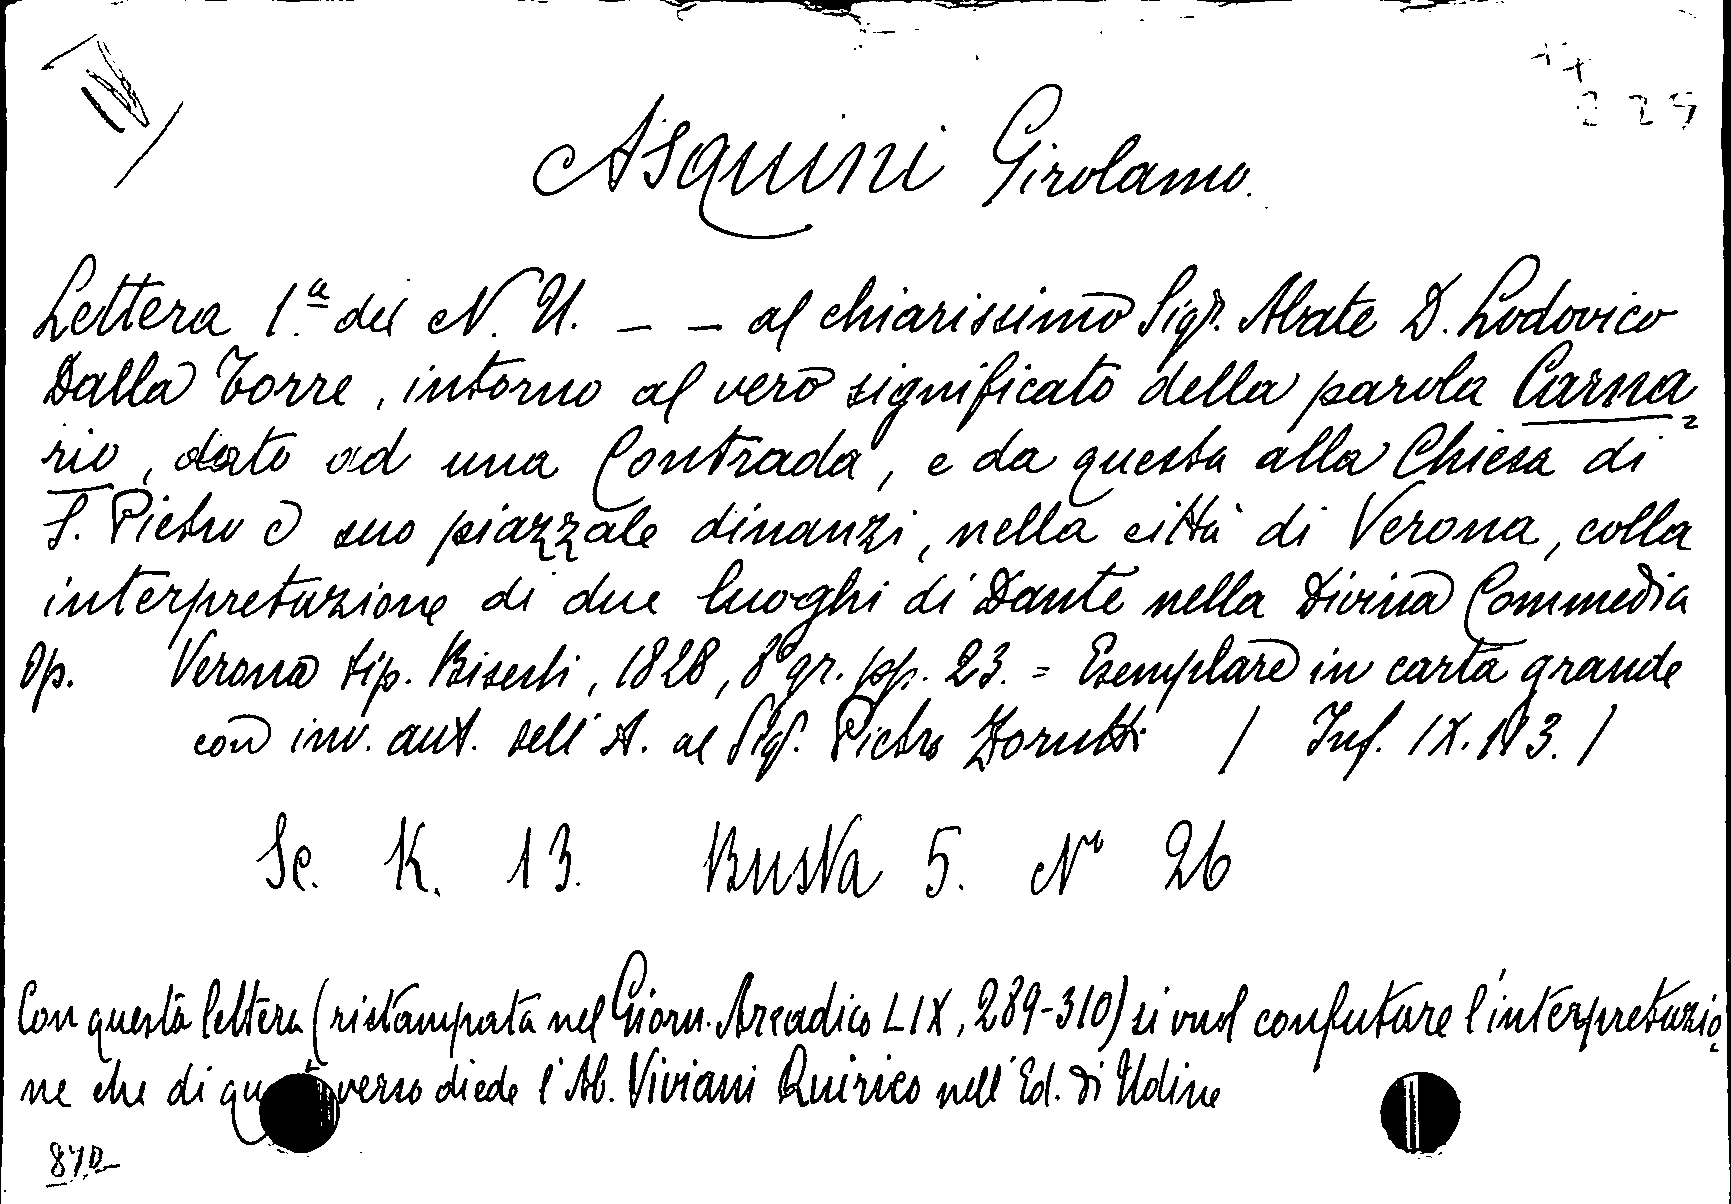 Asquini Girolamo.
Lettera 1.ª del N. U. _ _ al chiarissimo Sigr. Abate D. Lodovico
Dalla Torre, intorno al vero significato della parola Carna=
rio, dato ad una Contrada, e da questa alla Chiesa di
S. Pietro e suo piazzale dinanzi, nella città di Verona, colla
interpretazione di due luoghi di Dante nella Divina Commedia
Op. Verona tip. Bisesti, 1828, 8º gr. pp. 23. = Esemplare in carta grande
con inv. aut. dell'A. al Sigr. Pietro Zorutti / Inf. IX. 113. /
Sc. K. 13. Busta 5. Nº 26
Con questa lettera (ristampata nel Giorn. Arcadico LIX, 289-310) si vuol confutare l'interpretazio=
ne che di verso diede l'Ab. Viviani Quirico nell'Ed. di Udine